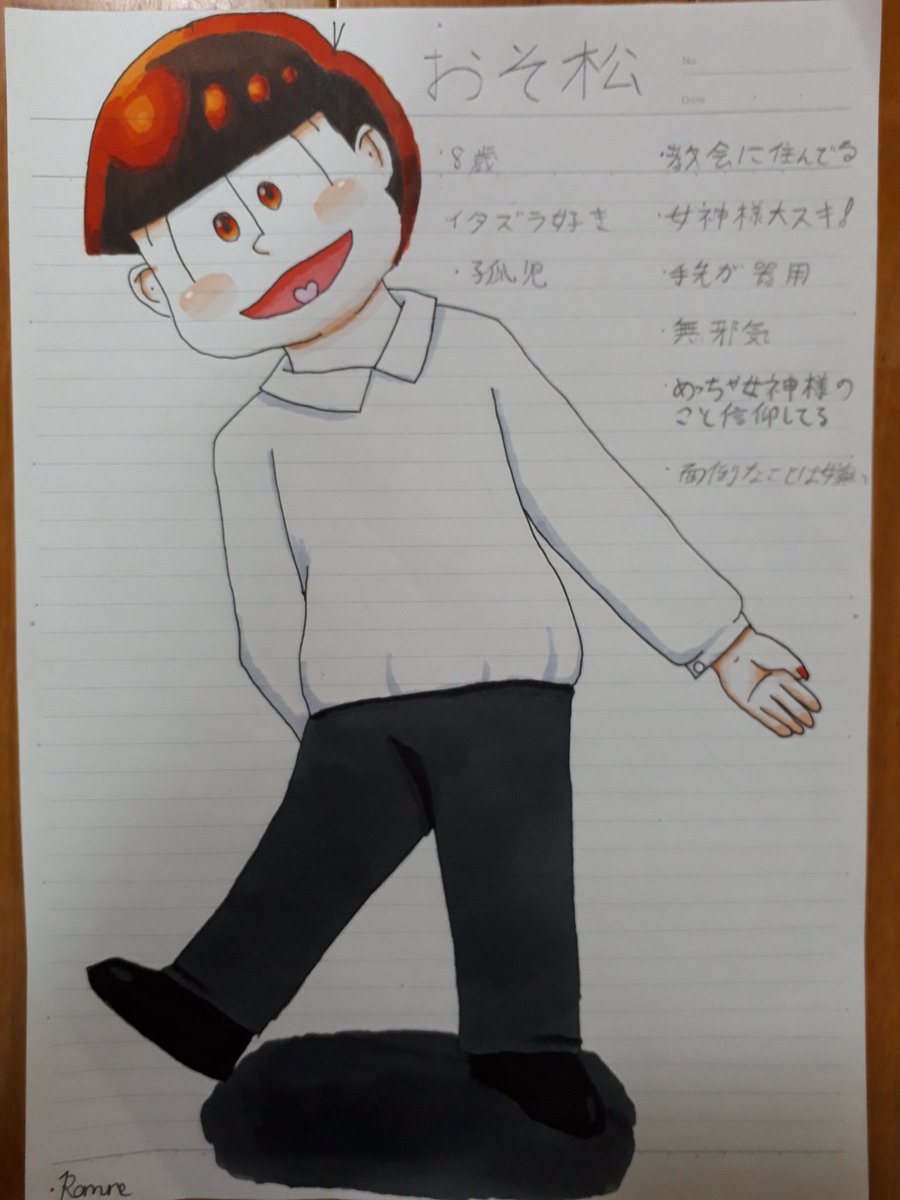 おそ松
No.
Date
・8歳
イタズラ好き
・孤児
・教会に住んでる
・女神様大スキ!
・手先が器用
・無邪気
・めっちゃ女神様の
こと信仰してる
・面倒なことは嫌い